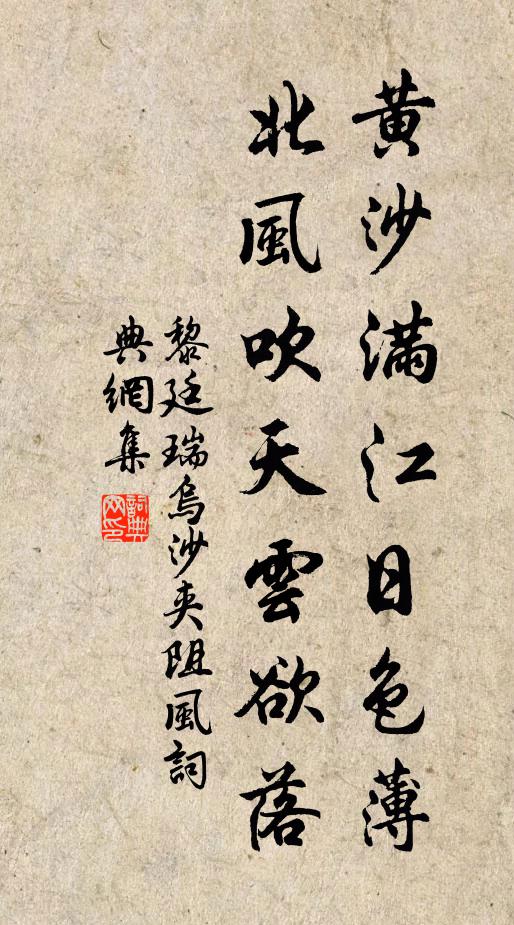 黄沙滿江日色薄
北風吹天雲欲落
黎廷瑞烏沙夾阻風詞
典網集
詞典
网印